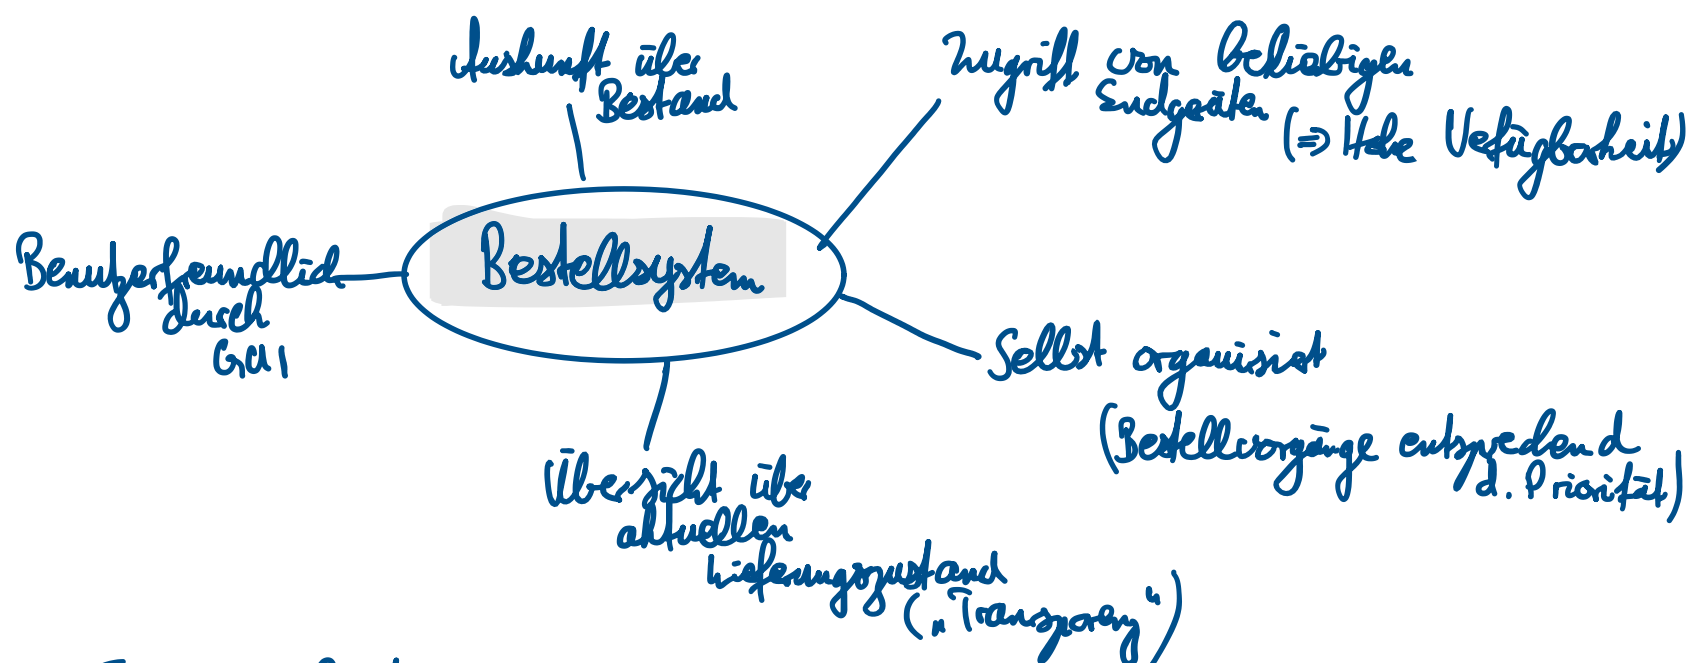 Auskunft über
Bestand
Zugriff von beliebigen
Endgeräten
(=> Hohe Verfügbarkeit)
Bestellsystem
Benutzerfreundlich
durch
GUI
Selbst organisiert
(Bestellvorgänge entsprechend
d. Priorität)
Übersicht über
aktuellen
Lieferungszustand
(„Transparenz“)